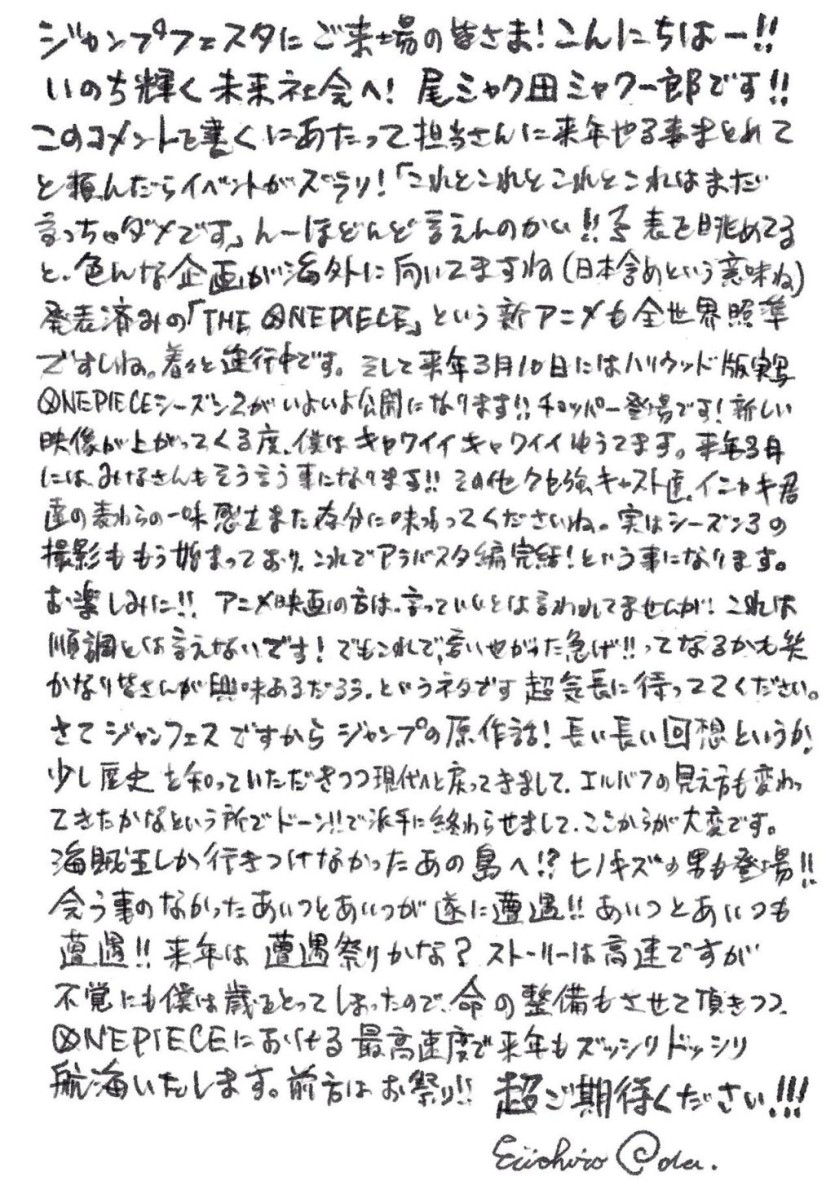 ジャンプフェスタにご来場の皆さま!こんにちはー!!
いのち輝く未来社会へ! 尾ミャク田ミャク一郎です!!
このコメントを書くにあたって担当さんに来年やる事まとめて
と頼んだらイベントがズラリ!「これとこれとこれとこれはまだ
言っちゃダメです。」んーほどんど言えんのかい!!予表を眺めてる
と、色んな企画が海外に向いてますね(日本含めという意味ね)
発表済みの「THE ONE PIECE」という新アニメも全世界照準
ですしね。着々と進行中です。そして来年3月10日にはハリウッド版実写
ONEPIECEシーズン2がいよいよ公開になります!!チョッパー登場です!新しい
映像が上がってくる度、僕はキャワイイキャワイイゆうてます。来年3月
には、みなさんもそう言う事になります!!その他クセ強キャスト達、イニャキ君
達の麦わらの一味感もまた存分に味わってくださいね。実はシーズン3の
撮影ももう始まっており、これでアラバスタ編完結!という事になります。
お楽しみに!! アニメ映画の方は、言っていいとは言われてませんが!これは
順調とは言えないです!でもこれで、言いやがった急げ!!ってなるかも笑
かなり皆さんが興味あるだろう、というネタです 超気長に待っててください。
さてジャンフェスですからジャンプの原作話!長い長い回想というか、
少し歴史を知っていただきつつ現代へと戻ってきまして、エルバフの見え方も変わっ
てきたかなという所でドーン!!で派手に終わらせまして、ここからが大変です。
海賊王しか行きつけなかったあの島へ!?ヒノキズの男も登場!!
会う事のなかったあいつとあいつが遂に遭遇!!あいつとあいつも
遭遇!!来年は遭遇祭りかな?ストーリーは高速ですが
不覚にも僕は歳をとってしまったので、命の整備もさせて頂きつつ、
ONEPIECEにおける最高速度で来年もズッシリドッシリ
航海いたします。前方はお祭り!! 超ご期待ください!!!
Eiichiro Oda.